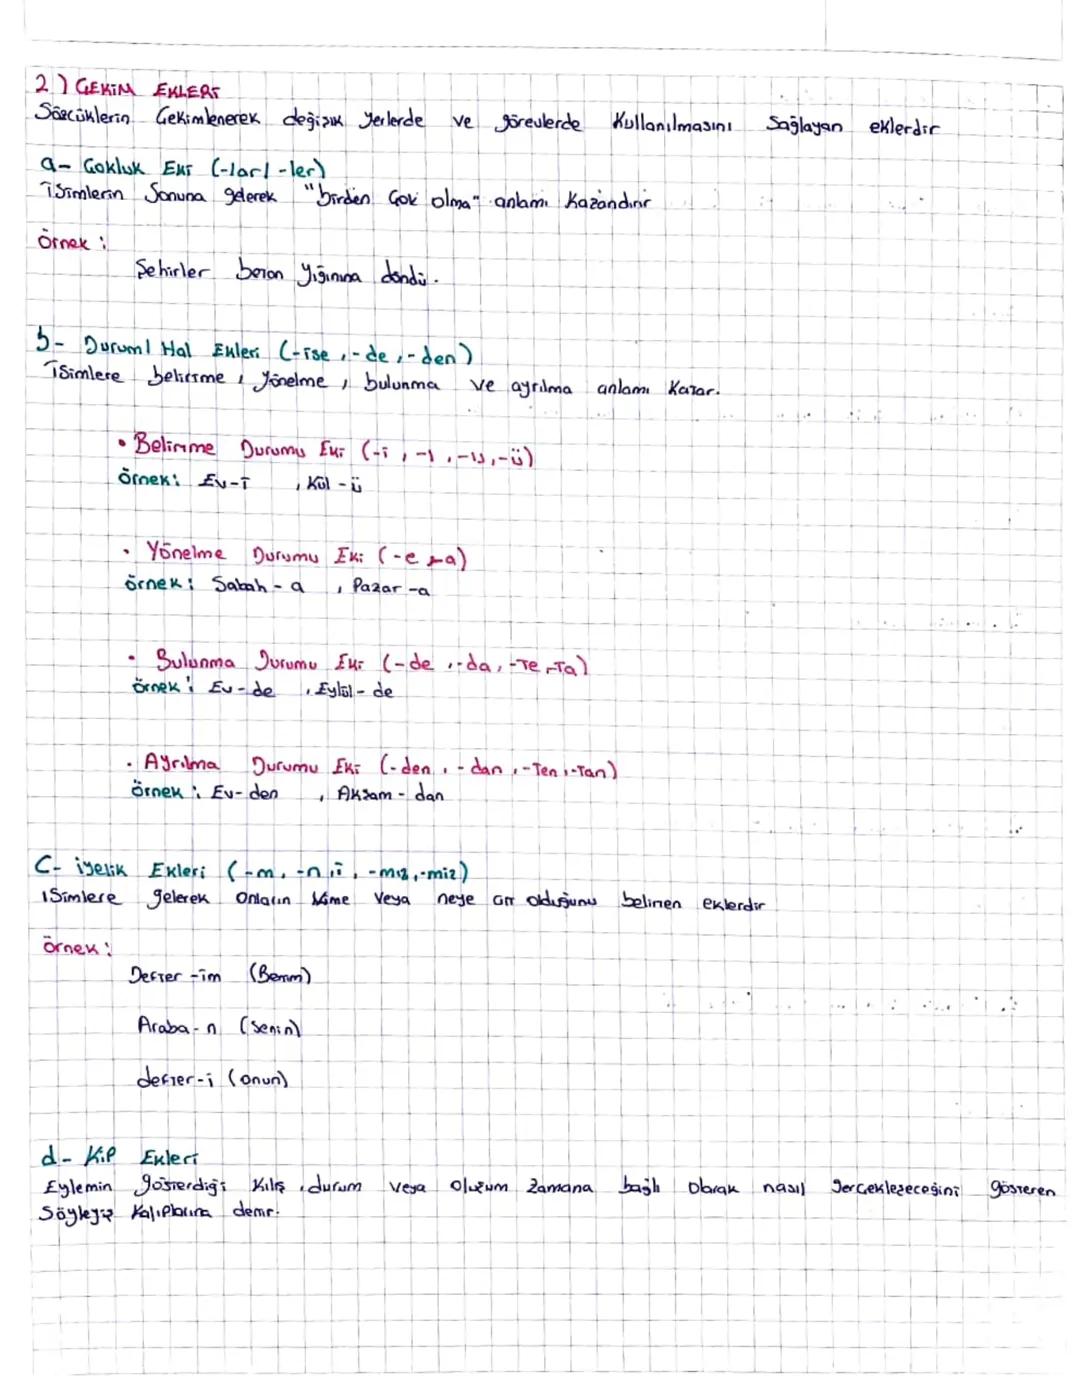 2) ÇEKİM EKLERİ
Sözcüklerin Çekimlenerek değişik yerlerde ve görevlerde Kullanılmasını Sağlayan eklerdir
a- Çokluk Eki (-lar/-ler)
İsimlerin Sonuna gelerek "birden Çok olma" anlamı Kazandırır
Örnek:
Şehirler beton yığınına döndü.
b- Durum/ Hal Ekleri (-ise, -de, -den)
İsimlere belirtme, yönelme, bulunma ve ayrılma anlamı Katar.
• Belirtme Durumu Eki (-i, -ı, -u, -ü)
Örnek: Ev-i, Kül-ü
• Yönelme Durumu Eki (-e, -a)
örnek: Sabah-a, Pazar-a
• Bulunma Durumu Eki (-de, -da, -Te, -Ta)
örnek: Ev-de, Eylül-de
• Ayrılma Durumu Eki (-den, -dan, -Ten, -Tan)
örnek: Ev-den, Akşam-dan
C- iyelik Ekleri (-m, -n, i, -mız, -miz)
İsimlere gelerek onların kime veya neye ait olduğunu belirten eklerdir
Örnek:
Defter-im (Benim)
Araba-n (Senin)
defter-i (onun)
d- Kip Ekleri
Eylemin gösterdiği Kılış, durum veya oluşum zamana bağlı olarak nasıl gerçekleşeceğini gösteren
Söyleyiş Kalıplarına denir.